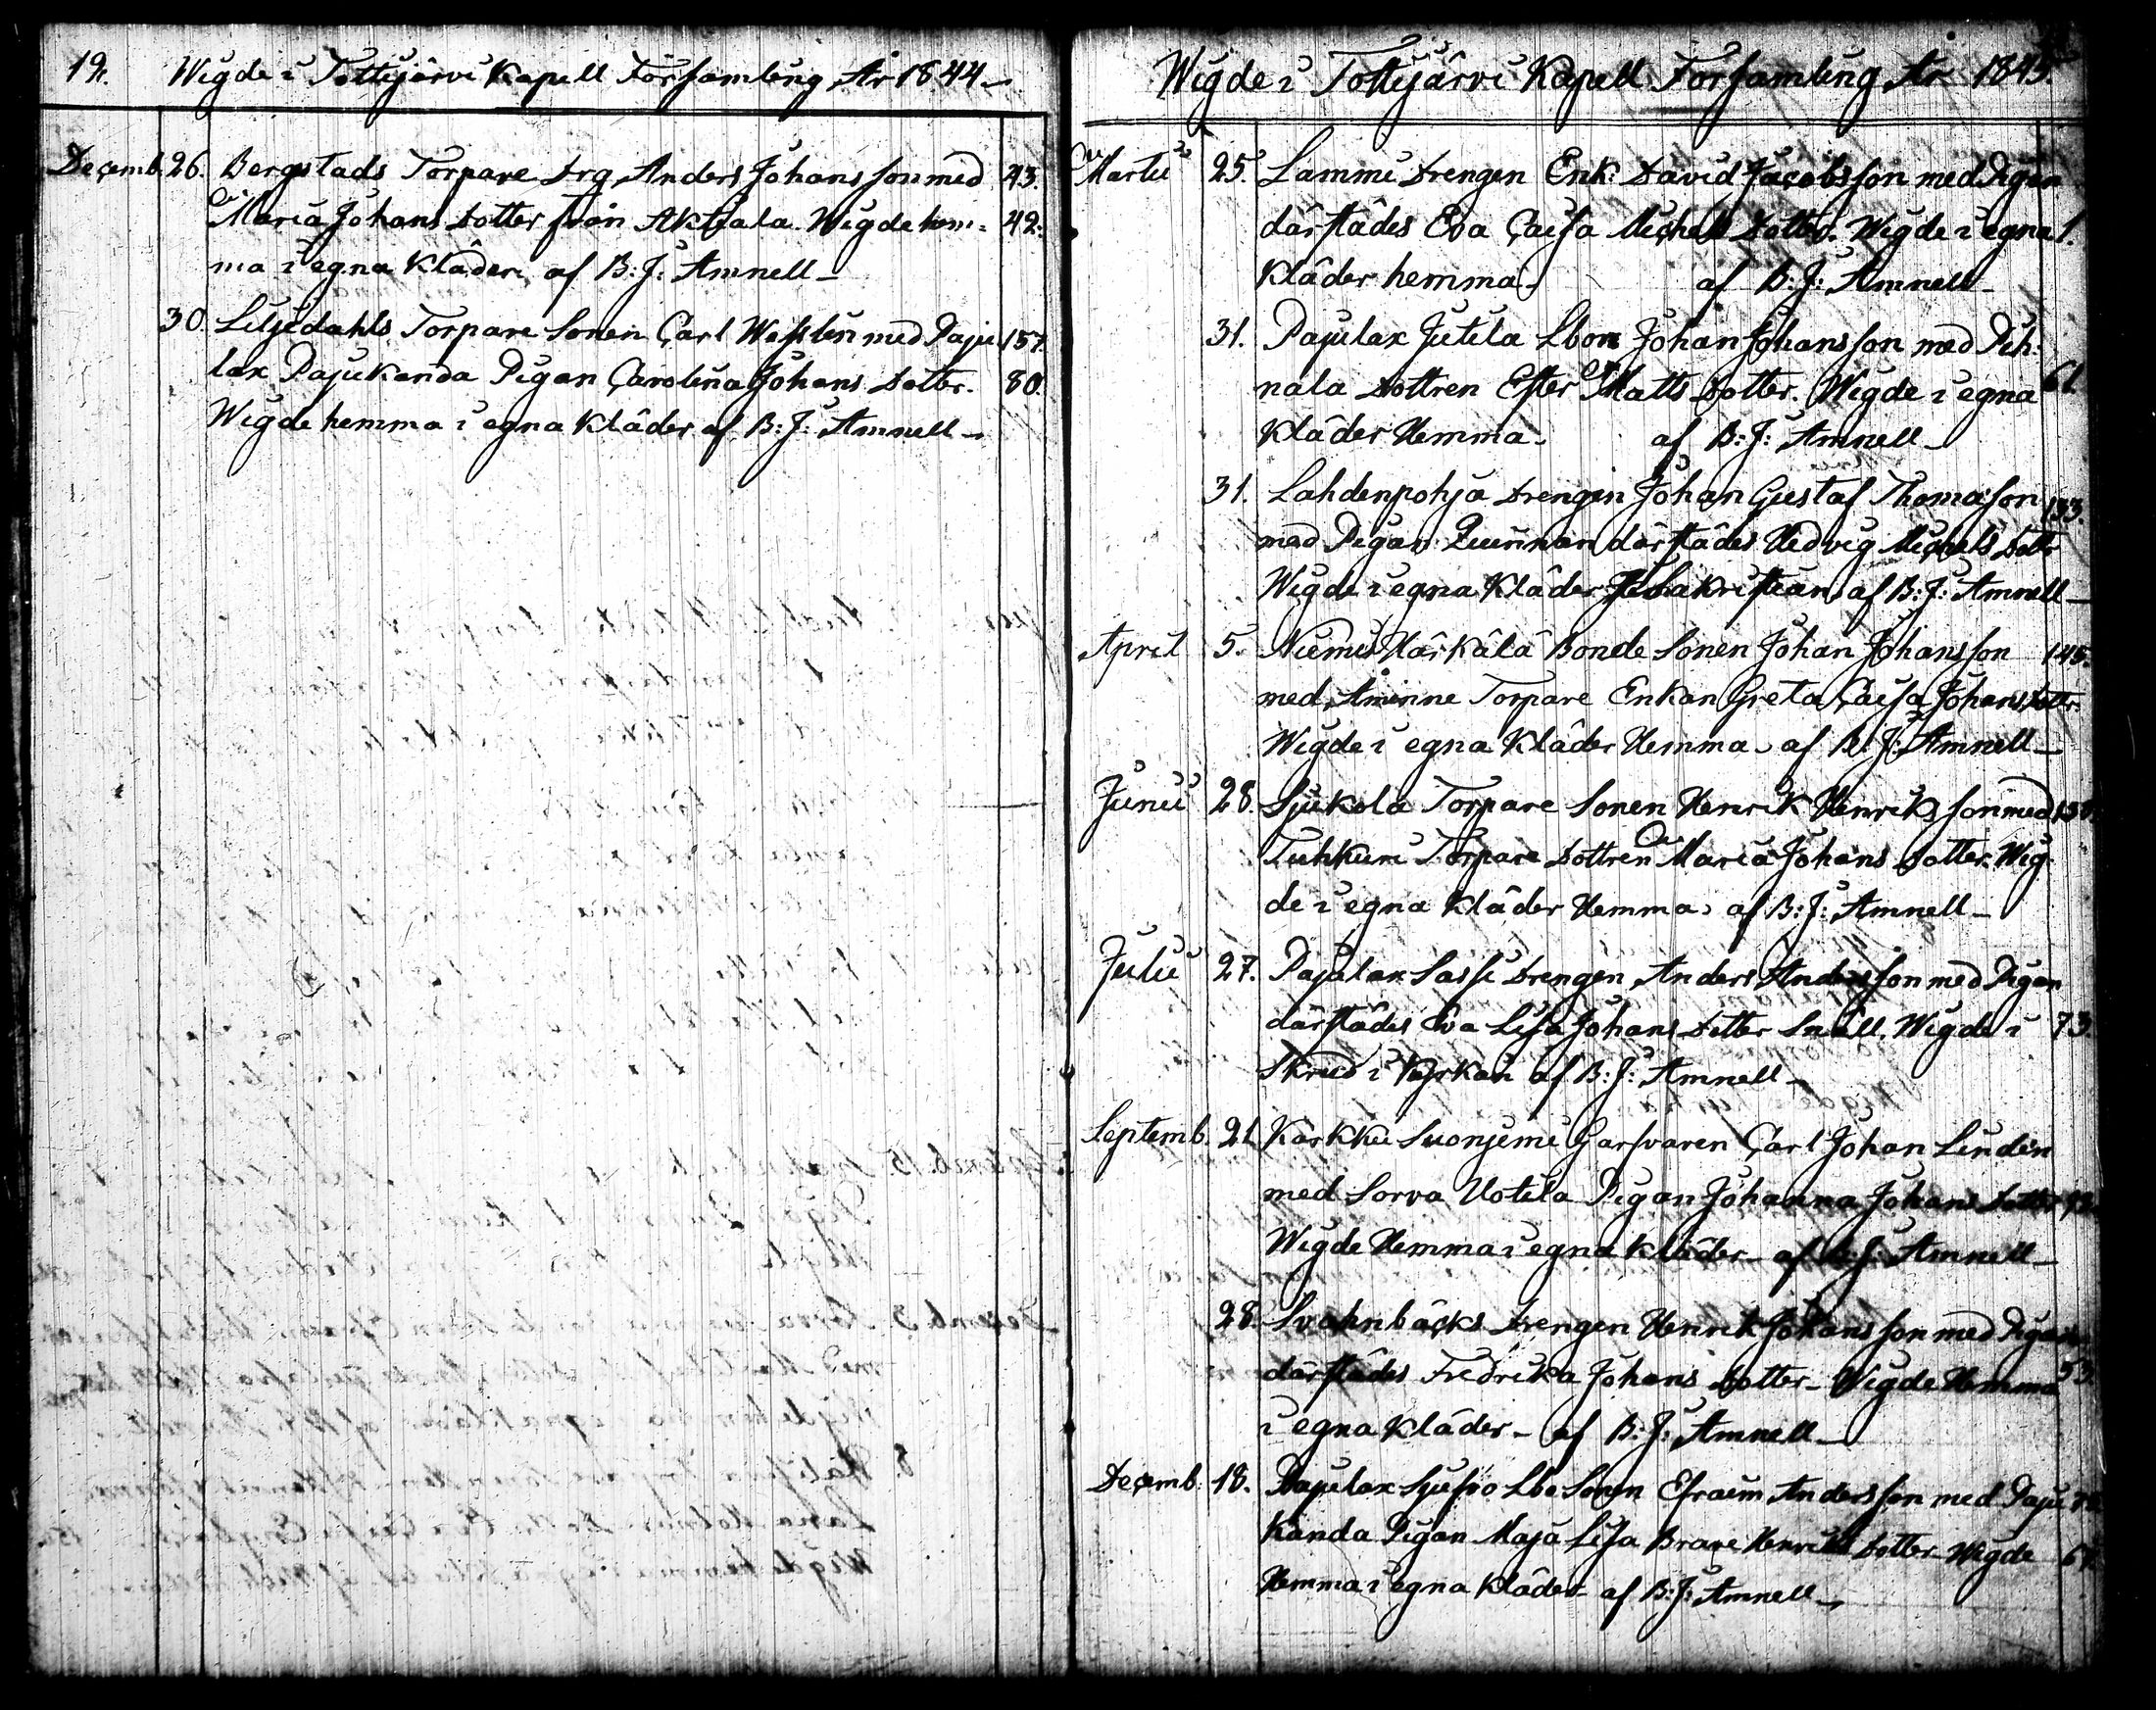 19. Wigde i Tottijärvi Kapell Församling År 1844
Decemb. 26. Bergstads Torpare Drg. Anders Johansson med 43.
Maria Johans Dotter från Aktiala. Wigde hem= 42.
ma i egna Kläder af B: J: Amnell
30. Liljedahls Torpare Sonen Carl Wesslin med Paju 157.
lax Pajukanda Pigan Carolina Johans Dotter. 80.
Wigde hemma i egna Kläder af B: J: Amnell
Wigde i Tottijärvi Kapell Församling År 1845.
Martii 25. Lammi Drengen Enk: David Jacobsson med Pigan
därstädes Eva Caisa Michels Dotter. Wigde i egna 1.
Kläder hemma. af B: J: Amnell
31. Pajulax Jutila Lbon Johan Johansson med Pih=
nala Dottren Ester Matts Dotter. Wigde i egna 61.
Kläder Hemma. af B: J: Amnell
31. Lahdenpohja Drengen Johan Gustaf Thomasson 133.
med Pigan Qvinnan därstädes Hedvig Michels Dotter
Wigde i egna Kläder i Sakristian af B: J: Amnell
April 5. Niemis Härkälä Bonde Sonen Johan Johansson 148.
med Åminne Torpare Enkan Greta Caisa Johans Dotter.
Wigde i egna Kläder Hemma af B: J: Amnell
Junii 28. Sjukola Torpare Sonen Henrik Henriksson med
Tuhkuri Torpare Dottren Maria Johans Dotter. Wig=
de i egna Kläder Hemma af B: J: Amnell
Julii 27. Pajulax Sassi Drengen Anders Andersson med Pigan
därstädes Eva Lisa Johans Dotter Snäll. Wigde i 73.
Skrud i Kyrkan af B: J: Amnell
Septemb. 21. Karkku Suonjemi Garfvaren Carl Johan Lindén
med Sorva Uotila Pigan Johanna Johans Dotter
Wigde Hemma i egna Kläder af B: J: Amnell
28. Svahnbäcks Drengen Henrik Johansson med Pigan
därstädes Fredrika Johans Dotter. Wigde Hemma 53.
i egna Kläder af B: J: Amnell
Decemb. 18. Pajulax Sjufvo Lbo Sonen Efraim Andersson med Paju
kanda Pigan Maja Lisa Brave Henriks Dotter Wigde 67.
Hemma i egna Kläder af B: J: Amnell